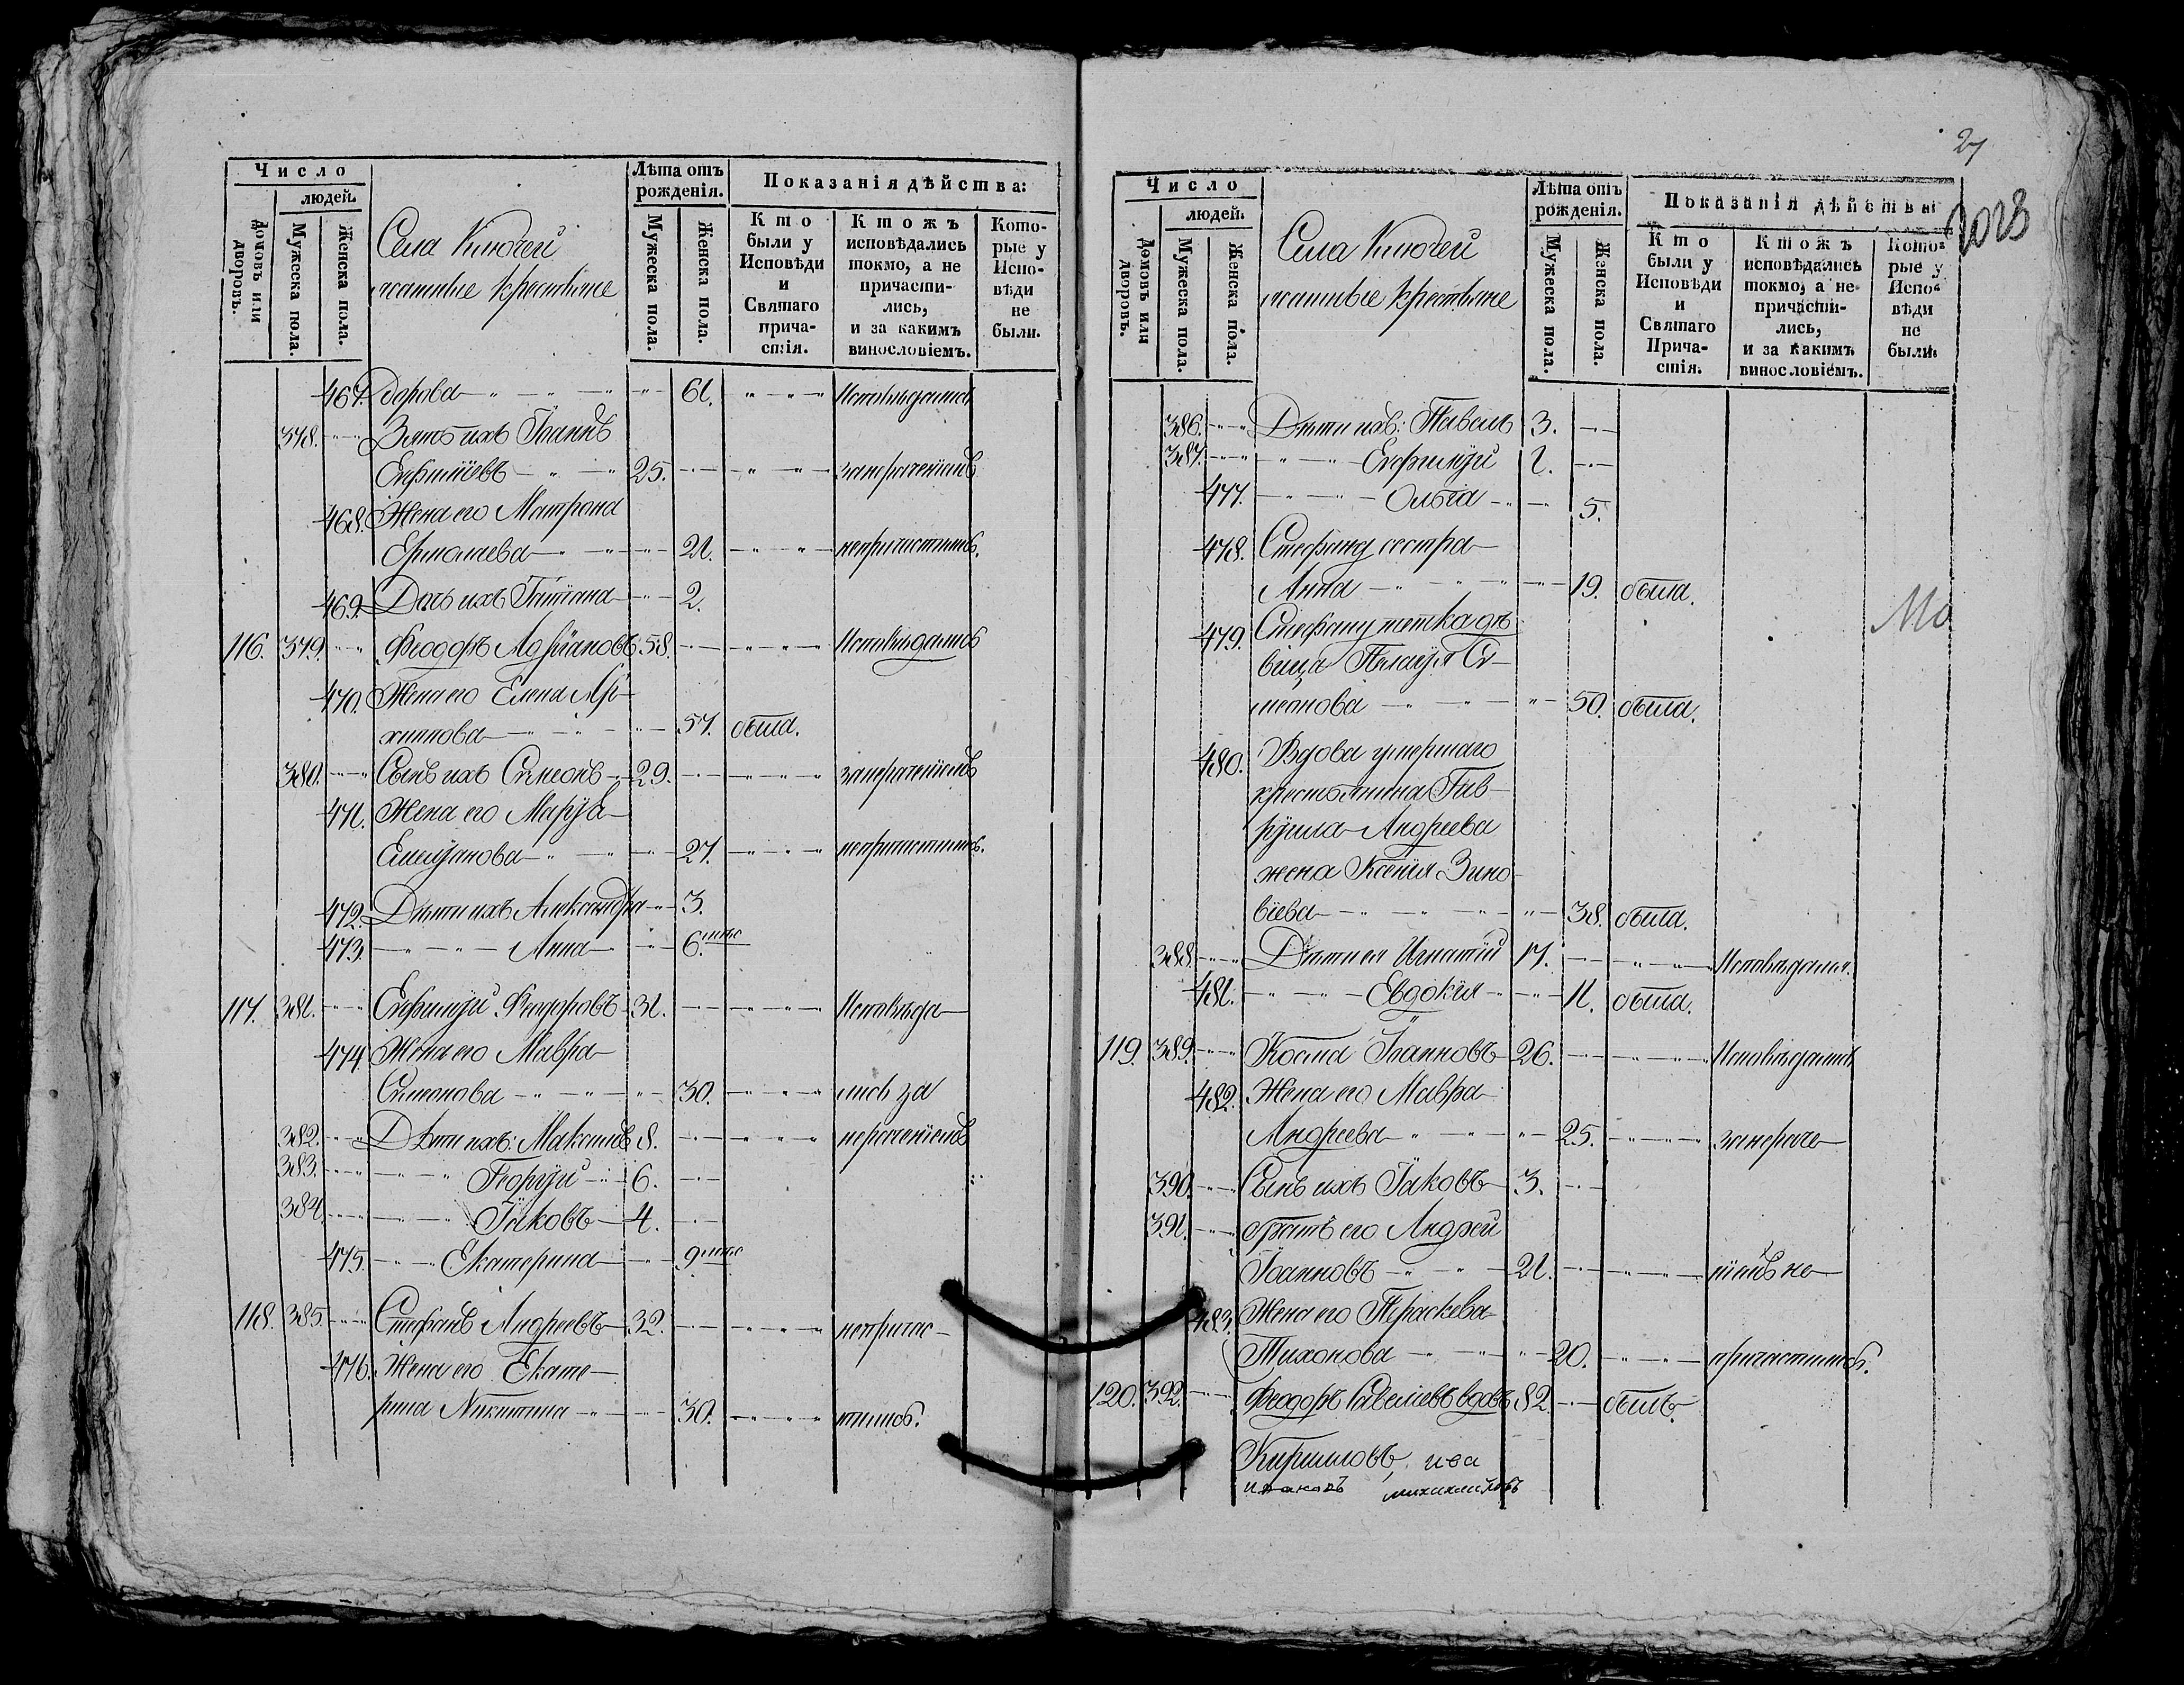 Число
людей.
Домовъ или дворовъ.
Мужеска пола.
Женска пола.
Села Ключей
ясашные крестьяне
Лѣта отъ рожденія.
Мужеска пола.
Женска пола.
Показанія дѣйства:
Кто были у Исповѣди и Святаго причастія.
Ктожъ исповѣдались токмо, а не причастились, и за какимъ винословіемъ.
Которые у Исповѣди не были.
467. дорова 61. Исповѣдались
378. Зять ихъ Іоаннъ
Евфиміевъ 25. занераченіемъ
468. Жена его Матрона
Ермолаева 21. непричастились.
469. Дочь ихъ Татіана 2.
116. 379. Ѳеодоръ 58. Исповѣдались
470. Жена его Елена Ар-
хипова 57. была.
380. Сынъ ихъ Сѵмеонъ 29. занераченіемъ
471. Жена его Марѳа
Емелѵанова 27. непричастились.
472. Дѣти ихъ Александра 3.
473. Анна 6.
117. 381. Евфимѵй Ѳеодоровъ 31. Исповѣда-
474. Жена его Мавра
Сѵмеонова 30. лись за
382. Дѣти ихъ: Максимъ 8. нераченіемъ
383. Георгѵй 6.
384. Іаковъ 4.
475. Екатерина 9
118. 385. Стефанъ Андреевъ 32. непричас-
476. Жена его Екате-
рина Никитина 30. тились.
27
1023
Число
людей.
Домовъ или дворовъ.
Мужеска пола.
Женска пола.
Села Ключей
ясашные крестьяне
Лѣта отъ рожденія.
Мужеска пола.
Женска пола.
Показанія дѣйства
Кто были у Исповѣди и Святаго Причастія.
Ктожъ исповѣдались токмо, а не причастились, и за какимъ винословіемъ.
Которые у Исповѣди не были.
386. Дѣти ихъ: Павелъ 3.
387. Евфимѵй 1.
477. Ольга 5.
478. Стефану сестра
Анна 19. была.
479. Стефану тетка дѣ-
вица Пелагѵя Сѵ-
меонова 50. была.
480. Вдова умершаго
крестьянина Гав-
рѵила Андреева
жена Ксенія Зино-
віева 38. была.
388. Дѣти ея Игнатій 17. Исповѣдался.
481. Евдокія 11. была.
119. 389. Косма Іоанновъ 26. Исповѣдались
482. Жена его Мавра
Андреева 25. занераче-
390. Сынъ ихъ Іаковъ 3.
391. братъ его Андрей
Іоанновъ 21. ніемъ не
483. Жена его Параскева
Тихонова 20. причастились.
120. 392. Ѳеодоръ Савеліевъ вдовъ 82. былъ.
Кирилловъ, ива
михаилов